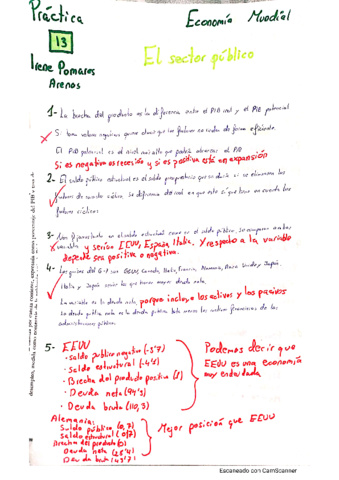 Práctica
Economía Mundial
13
El sector público
Irene Pomares
Arenas
1- La brecha del producto es la diferencia entre el PIB real y el PIB potencial
Si toma valores negativos quiere decir que los factores no rinden de forma eficiente.
El PIB potencial es el nivel más alto que podría alcanzar el PIB
Si es negativo es recesión y si es positiva está en expansión
2- El saldo público estructural es el saldo presupuestario que se daría si se eliminara los
factores de nuestro ciclico. Se diferencia del real en que este sí que tiene en cuenta los
factores cíclicos.
3- 
variables y serían EEUU, España, Italia. Y respecto a la variable
depende sea positiva o negativa.
4- Los países del G-7 son EEUU, Canadá, Italia, Francia, Alemania, Reino Unido y Japón.
Italia y Japón serán los que tienen mayor deuda neta.
La variable es la deuda neta, porque incluye los activos y los pasivos
La deuda pública neta es la deuda pública bruta menos los activos financieros de las
administraciones públicas.
5- EEUU
· saldo público negativo (-5'7)
· saldo estructural (-4'5)
· Brecha del producto positiva
· Deuda neta
· Deuda bruta (110,3)
Podemos decir que
EEUU es una economía
muy endeudada
Alemania:
Saldo público
Saldo estructural (0,7)
Brecha del producto
Deuda neta
Deuda bruta
Mejor posición que EEUU
Escaneado con CamScanner